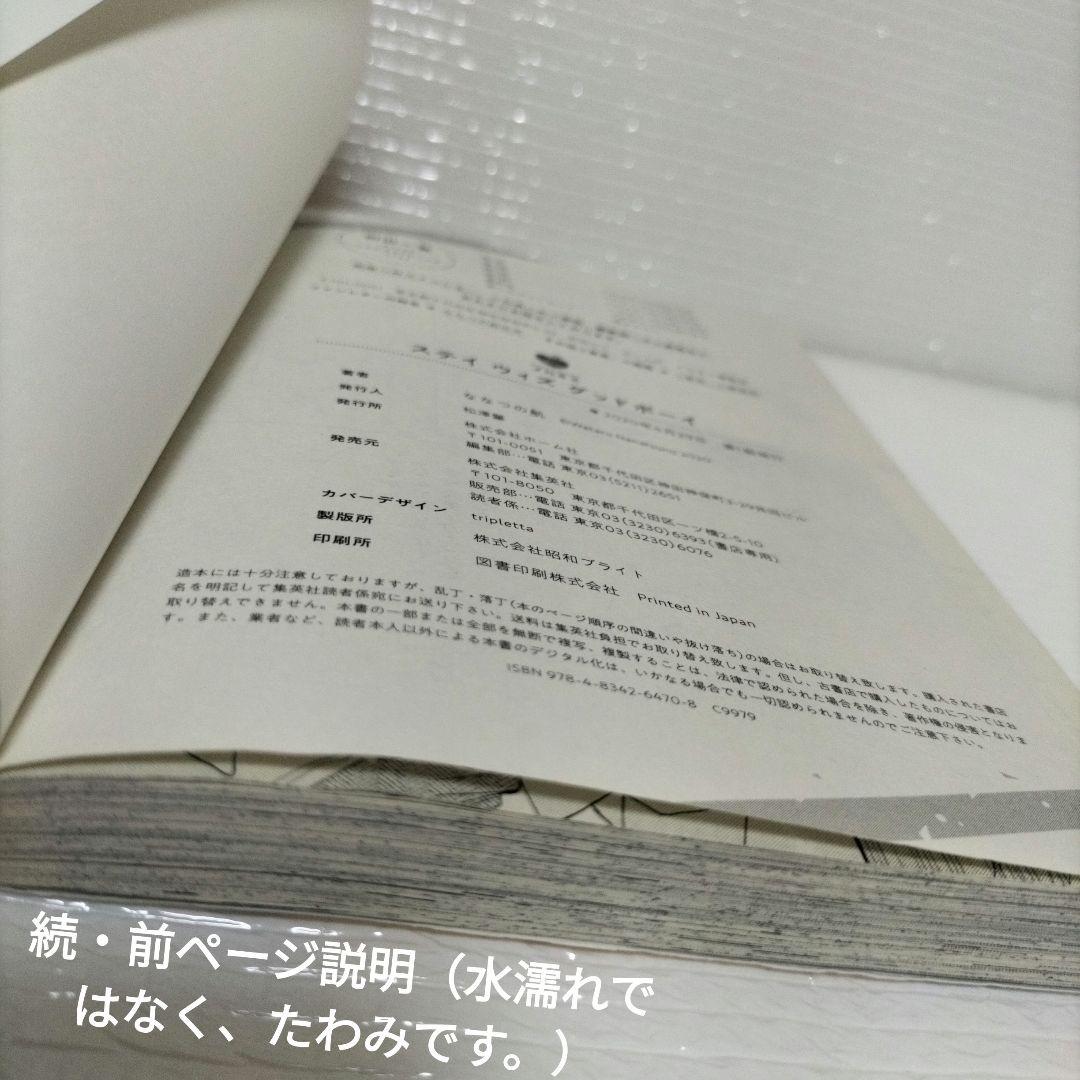 ステイ ウィズ グッドボーイ
著者
ななつの航
発行人
松澤肇
発行所
株式会社ホーム社
〒101-0051 東京都千代田区神田神保町3-29共同ビル
編集部…電話 東京03(5211)2651
発売元
株式会社集英社
〒101-8050 東京都千代田区一ツ橋2-5-10
販売部…電話 東京03(3230)6393(書店専用)
読者係…電話 東京03(3230)6076
カバーデザイン
tripletta
製版所
株式会社昭和ブライト
印刷所
図書印刷株式会社 Printed in Japan
造本には十分注意しておりますが、乱丁・落丁(本のページ順序の間違いや抜け落ち)の場合はお取り替え致します。購入された書店
名を明記して集英社読者係宛にお送り下さい。送料は集英社負担でお取り替え致します。但し、古書店で購入したものについてはお
取り替えできません。本書の一部または全部を無断で複写、複製することは、法律で認められた場合を除き、著作権の侵害となりま
す。また、業者など、読者本人以外による本書のデジタル化は、いかなる場合でも一切認められませんのでご注意下さい。
ISBN 978-4-8342-6470-8 C9979
続・前ページ説明(水濡れで
はなく、たわみです。)